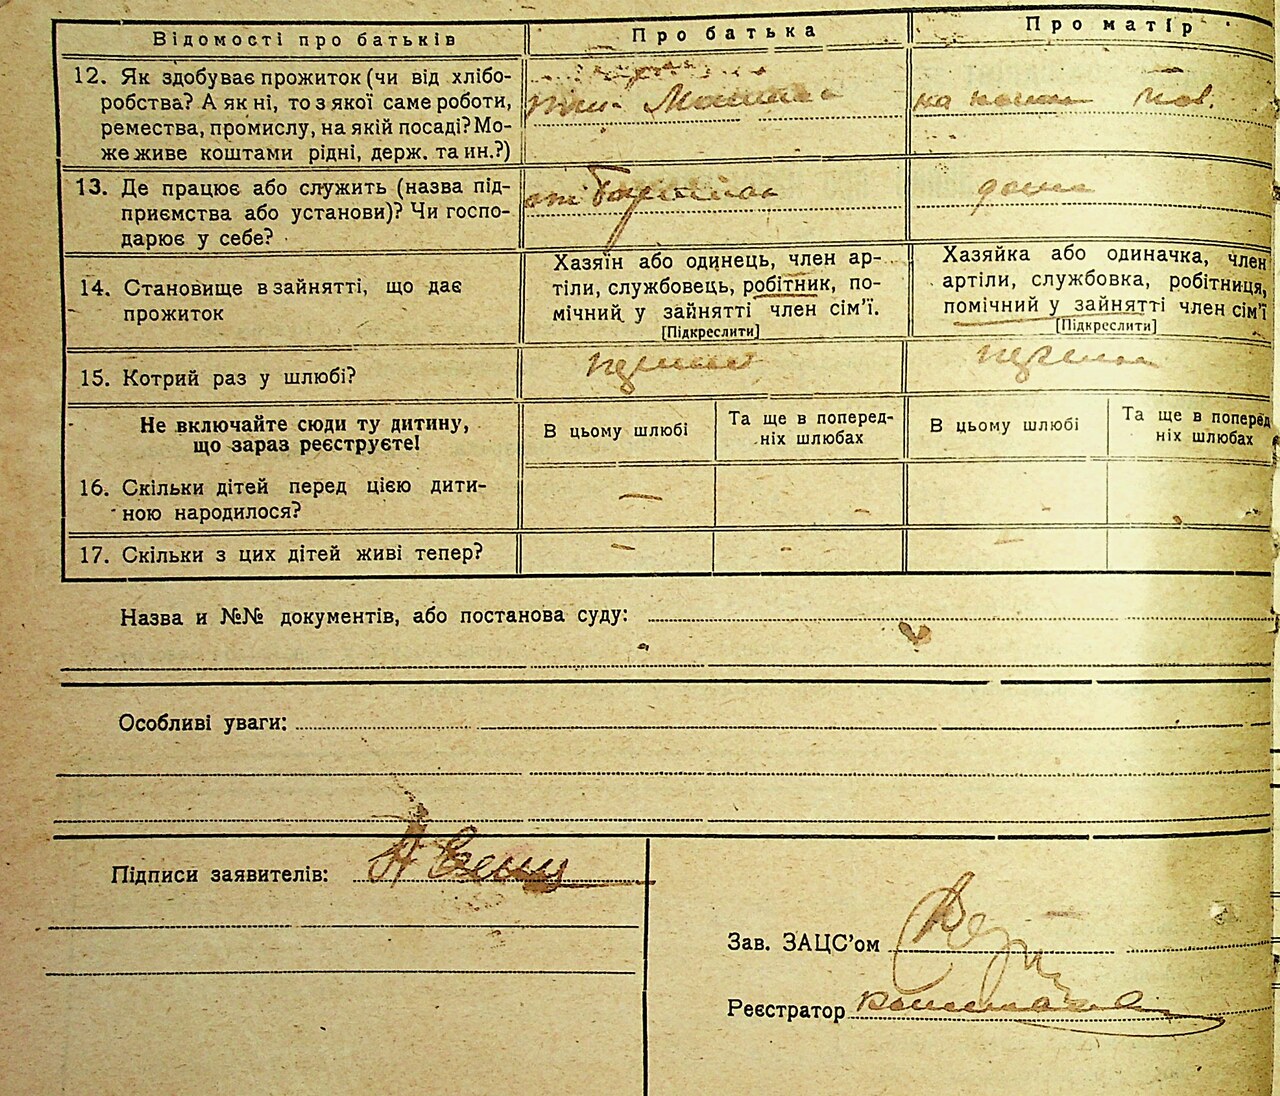 Відомості про батьків
Про батька
Про матір
12. Як здобуває прожиток (чи від хлібо-
робства? А як ні, то з якої саме роботи,
ремества, промислу, на якій посаді? Мо-
же живе коштами рідні, держ. та ин.?)
на
13. Де працює або служить (назва під-
приємства або установи)? Чи госпо-
дарює у себе?
дома
14. Становище в зайнятті, що дає
прожиток
Хазяїн або одинець, член ар-
тілі, службовець, робітник, по-
мічний у зайнятті член сім'ї.
[Підкреслити]
Хазяйка або одиначка, член
артіли, службовка, робітниця,
помічний у зайнятті член сім'ї
[Підкреслити]
15. Котрий раз у шлюбі?
Не включайте сюди ту дитину,
що зараз реєструєте!
В цьому шлюбі
Та ще в поперед-
ніх шлюбах
В цьому шлюбі
Та ще в поперед
ніх шлюбах
16. Скільки дітей перед цією дити-
ною народилося?
17. Скільки з цих дітей живі тепер?
Назва и №№ документів, або постанова суду:
Особливі уваги:
Підписи заявителів:
Зав. ЗАЦС'ом
Реєстратор